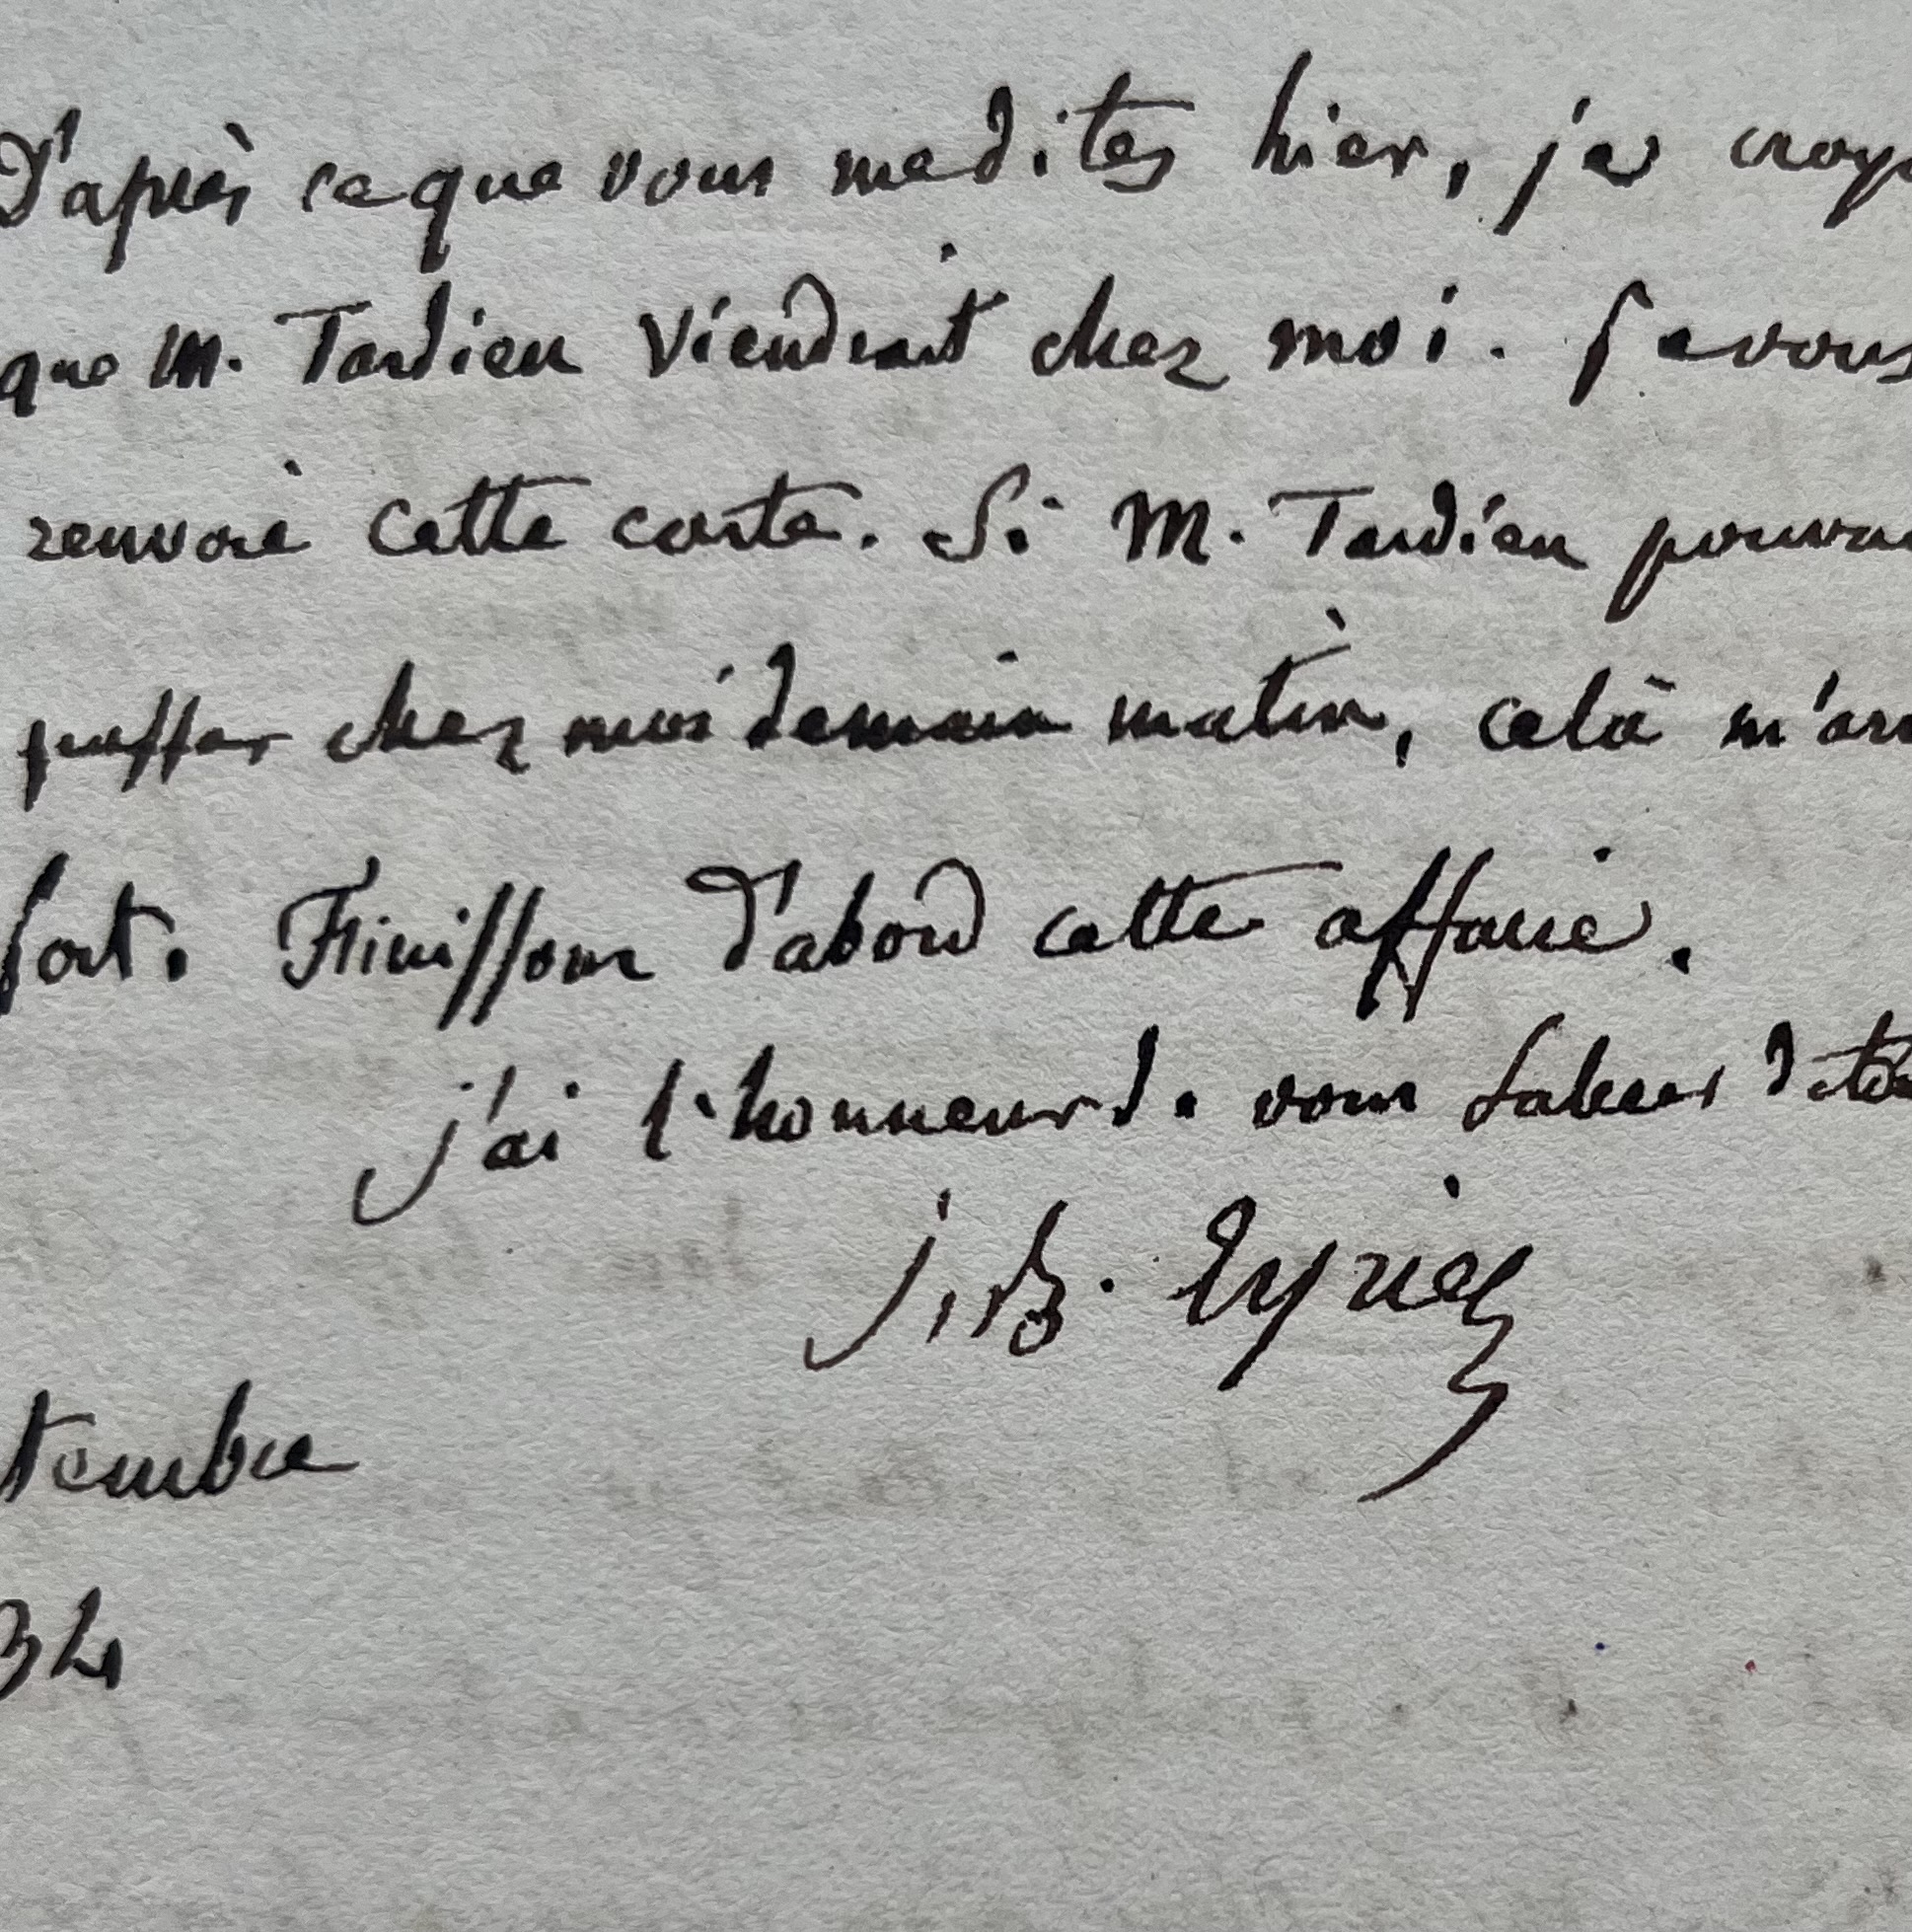 D'après ce que vous me dites hier, je croy
que M. Tardieu viendrait chez moi. Je vous
renvoie cette carte. Si M. Tardieu pouvai
passer chez moi demain matin, celà m'arr
fort. Finissons d'abord cette affaire.
j'ai l'honneur de vous saluer
J. B. Eyriès
tembre
34